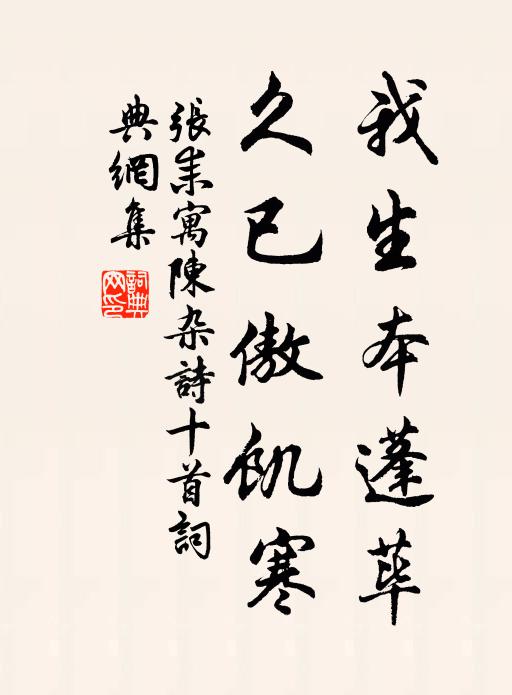 我生本蓬荜
久已傲飢寒
張耒寓陳杂詩十首詞
典網集
詞典
网印